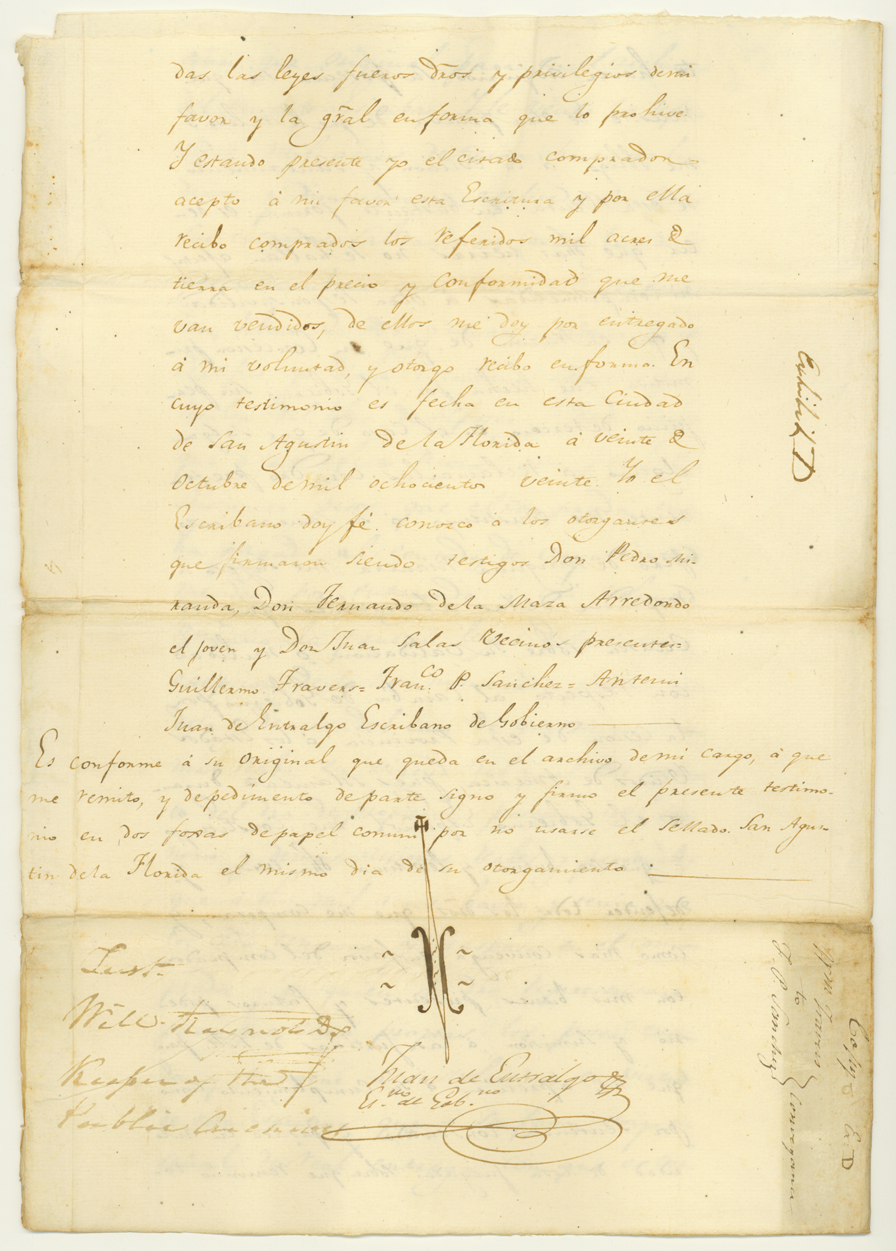 das las leyes fueros dros y privilegios demi
favor y la gral enforma que lo prohive.
Y estando presente yo el citado comprador
acepto á mi favor esta Escritura y por ella
recibo comprados los referidos mil acres de
tierra en el precio y conformidad que me
van vendidos, de ellos me doy por entregado
á mi voluntad, y otorgo recibo enforma. En
cuyo testimonio es fecha en esta Ciudad
de San Agustin de la Florida á veinte de
Octubre de mil ochocientos veinte. Yo el
Escribano doy fé conosco a los otorgantes
que firmaron siendo testigos Don Pedro Mi-
randa, Don Fernando de la Maza Arredondo
el joven y Don Juan Salas Vecinos presentes=
Guillermo Travers= Franco. P. Sanchez= Antemi
Juan de Entralgo Escribano de Gobierno
Es conforme á su original que queda en el archivo demi cargo, á que
me remito, y depedimento de parte signo y firmo el presente testimo-
nio en dos foxas de papel comun por no usarse el sellado. San Agus-
tin de la Florida el mismo dia de su otorgamiento
Juan de Entralgo
Esno de Gobno
Test.
Will. Reynolds
Keeper of the
Public Archives
Exhibit D
Wm Travers
to
F. P. Sanchez
Conveyance
Copy Ex D